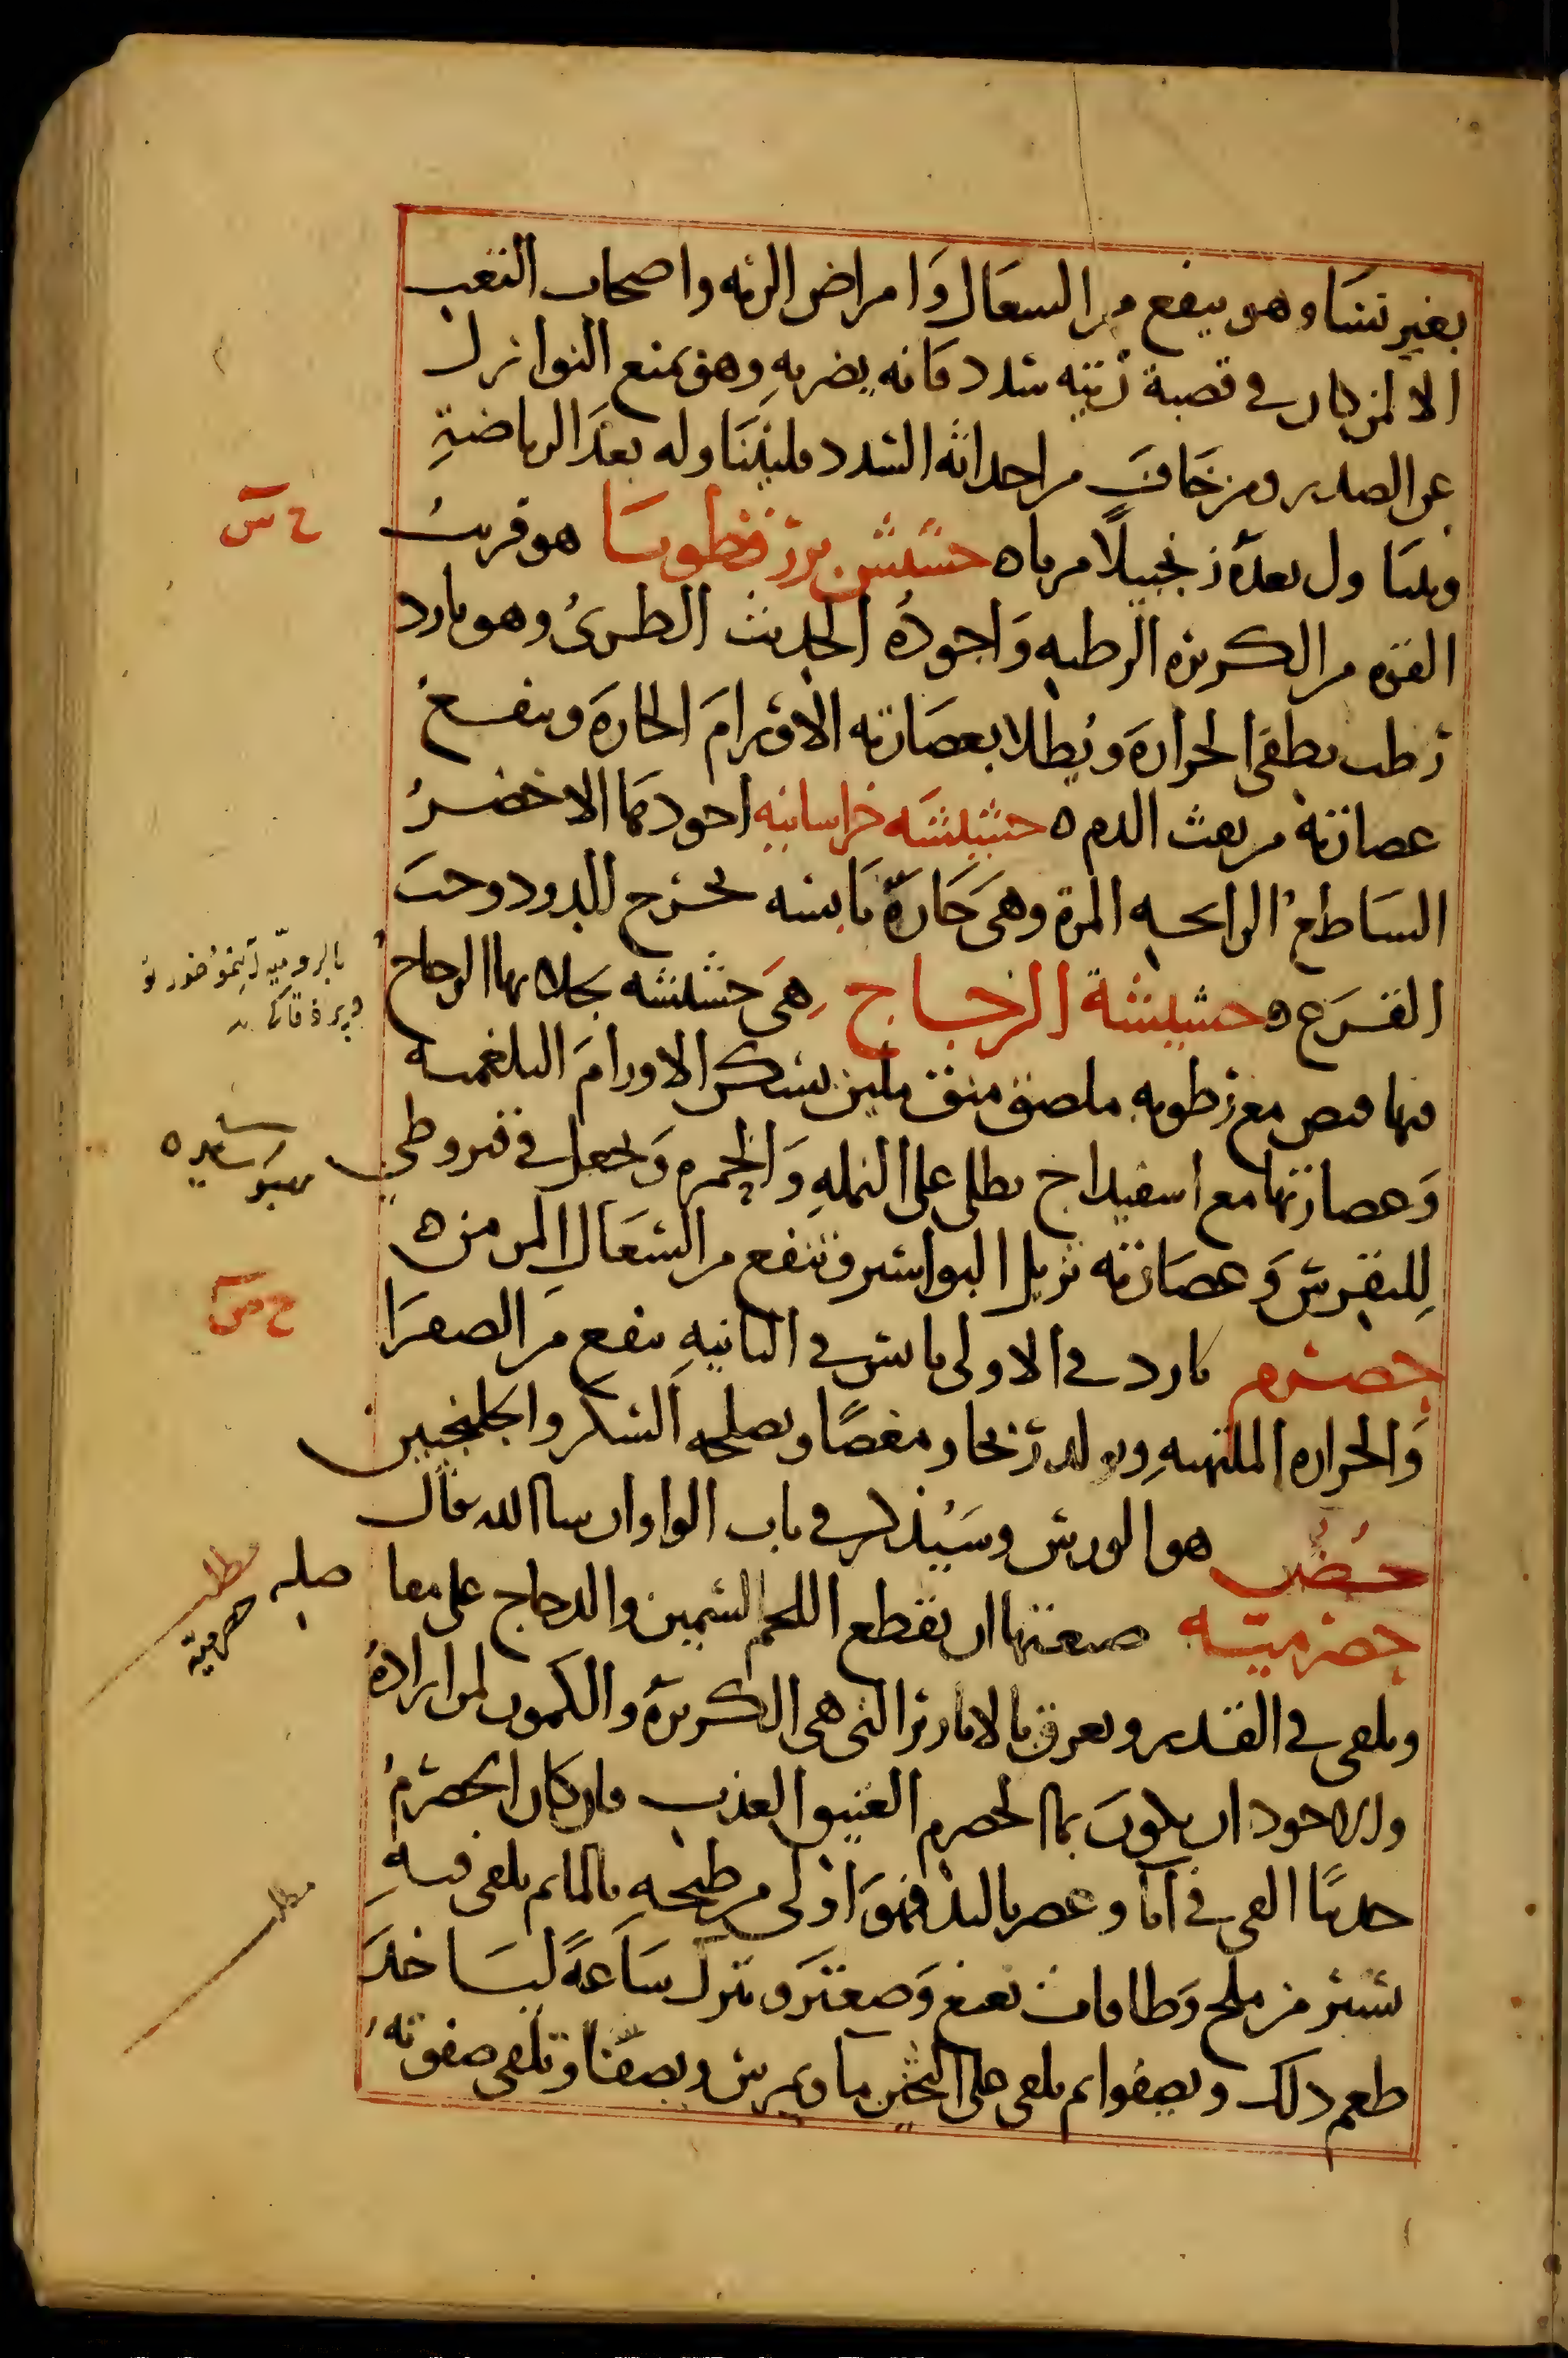 بغير نشا وهو ينفع من السعال وَامراض الرئه واصحاب التعب
الا لمن كان في قصبة رئته سدد فانه يضر به وهو يمنع النوازل
عن الصدر ومن خافَ من احداثه السدد فليتناوله بعدَ الرياضةِ
ويتناول بعده زنجبيلاً مربا ه حشيش بزرقطونا هو قريبُ
القوه من الكزبره الرطبه وَاجودهُ الحديث الطرىُ وهو بارد
رطب يطفي الحرارهَ ويُطلا بعصَارته الاورامَ الحارهَ وينفعُ
عصارته من نفث الدم ه حشيشَه خراسانيه اجودهَا الاخضرُ
السَاطعُ الرايحه المرة وهىَ حَارهٌ يَابسه تخرج الدود وحبَ
القرَع ه حشيشة الزجاج هىَ حشيشه يجلا بها الزجاج
فيها قبض مع رطوبه ملصق منق ملين يسكن الاورامَ البلغميه
وَعصارتها مع اسفيداج يطلى على النمله وَالجمره وَيجعل في قيروطي
لِلنقرس وَعصَارته تزيل البواسير وتنفع من السُعَالِ المزمن ه
حصرم بارد في الاولى يابس في الثانيهِ ينفع من الصفرَا
وَالحراره الملتهبهِ ويولد ريحا ومغصًا ويصلحه السكر والجلنجبين
حُض هو الورس وسَيُذكر في باب الواو ان سا الله تعالى
حصرميّه صفتها ان يقطع اللحم السمين والدجاج على مفا صله
ويلقى في القدر ويعرق بالابازير التي هي الكزبره والكمون لمن ارادهُ
والاجود ان يكونَ بما الحصرم العتيق العذب فان كان الحصرمُ
حديثًا القي في انا وعصر باليد فهوَ اولى من طبخه بالما ثم يلقى فيهِ
يسير من ملح وَطاقات نعنع وَصعتر ويترك سَاعةً ليَاخذَ
طعم ذلك ويصفوا ثم يلقى على الثخين ما ويمرس ويصفّا وتلقى صفوته
ح س
بالروميه
ح س
مطلب
حصرميّه
مطلب